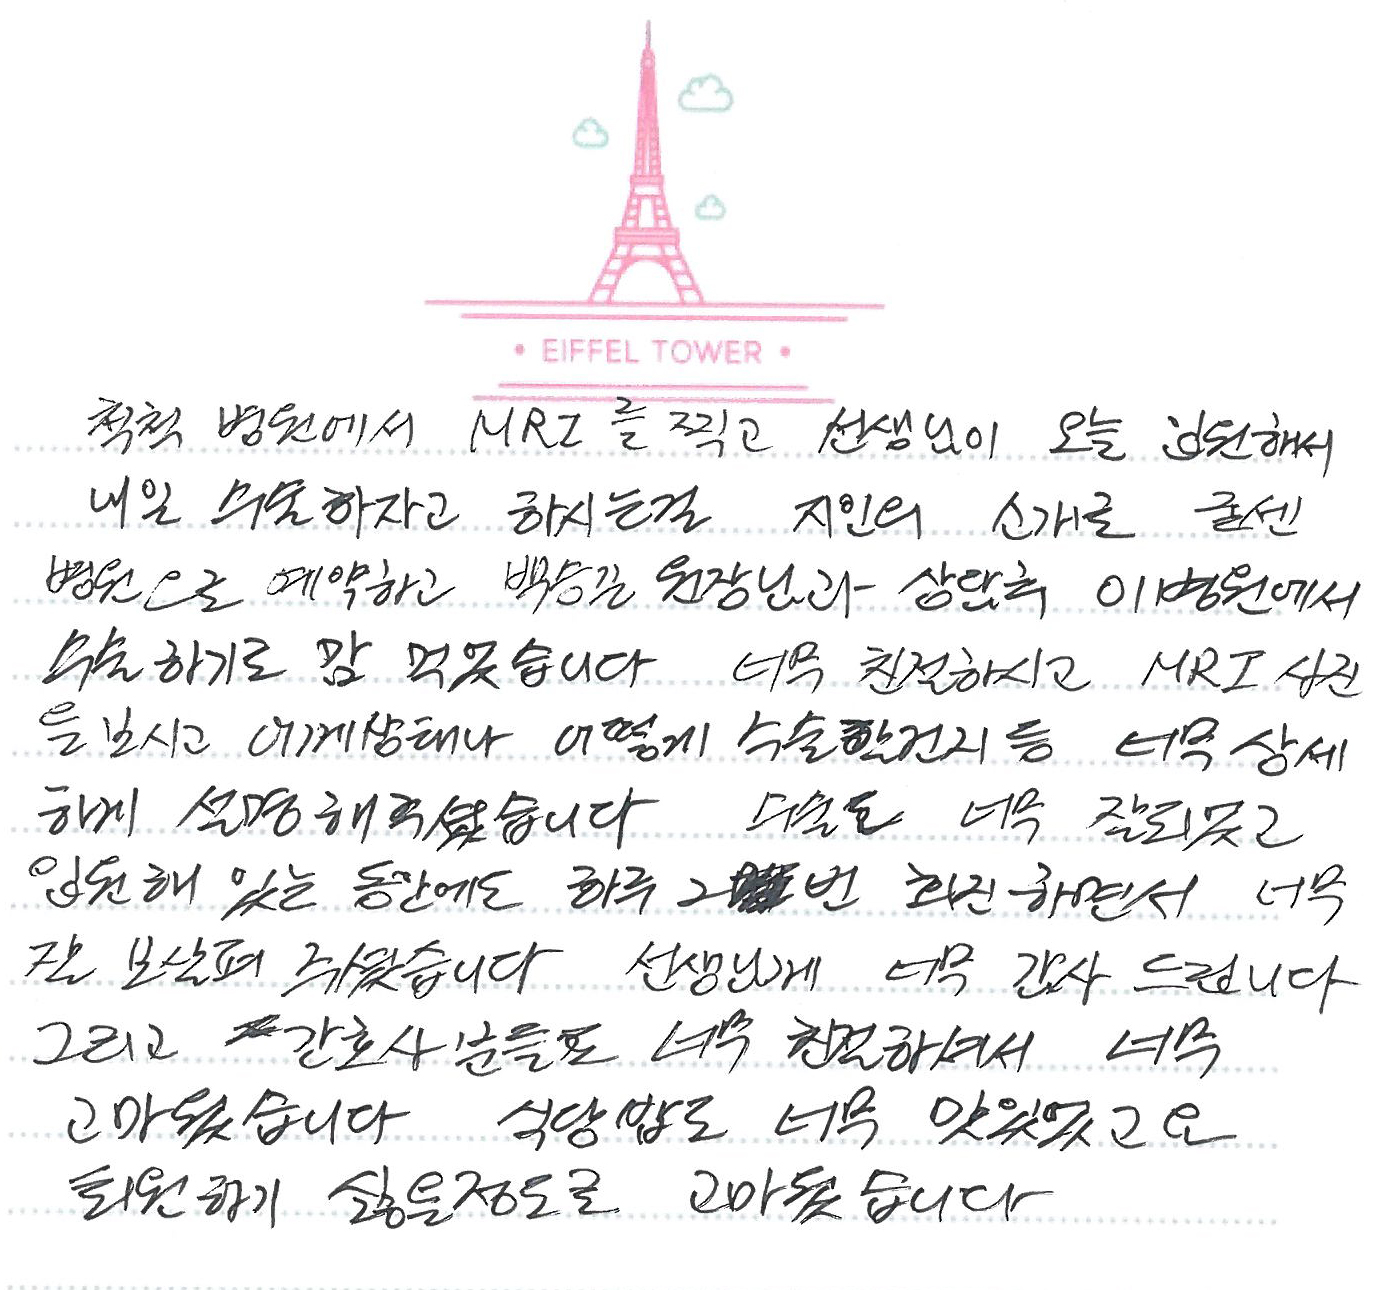 EIFFEL TOWER
척척 병원에서 MRI를 찍고 선생님이 오늘 입원해서
내일 수술하자고 하시는걸 지인의 소개로 굳센
병원으로 예약하고 백승길 원장님과 상담후 이병원에서
수술하기로 맘 먹었습니다 너무 친절하시고 MRI 사진
을 보시고 어깨상태나 어떻게 수술한건지 등 너무 상세
하게 설명해주셨습니다 수술도 너무 잘되었고
입원해 있는 동안에도 하루 2번 회진하면서 너무
잘 보살펴 주셨습니다 선생님께 너무 감사 드립니다
그리고 간호사분들도 너무 친절하셔서 너무
고마웠습니다 식당밥도 너무 맛있었고요
퇴원하기 싫을정도로 고마웠습니다